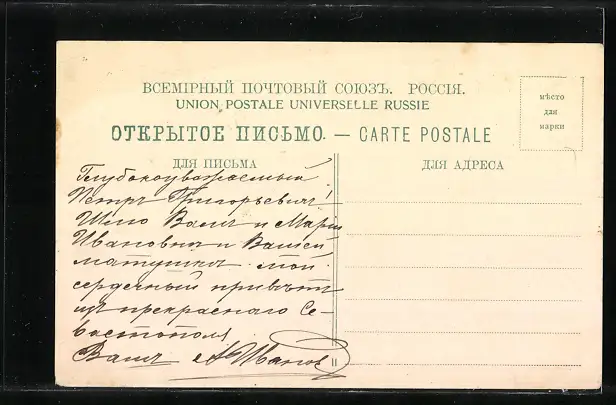 ВСЕМІРНЫЙ ПОЧТОВЫЙ СОЮЗЪ. РОССІЯ.
UNION POSTALE UNIVERSELLE RUSSIE
ОТКРЫТОЕ ПИСЬМО. — CARTE POSTALE
мѣсто
для
марки
ДЛЯ ПИСЬМА
ДЛЯ АДРЕСА
Глубокоуважаемый
Петръ Григорьевичъ!
Шлю Вамъ и Маріи
Ивановнѣ и Вашей
матушкѣ мой
сердечный привѣтъ
изъ прекраснаго Се-
вастополя!
Вашъ А. Ивановъ